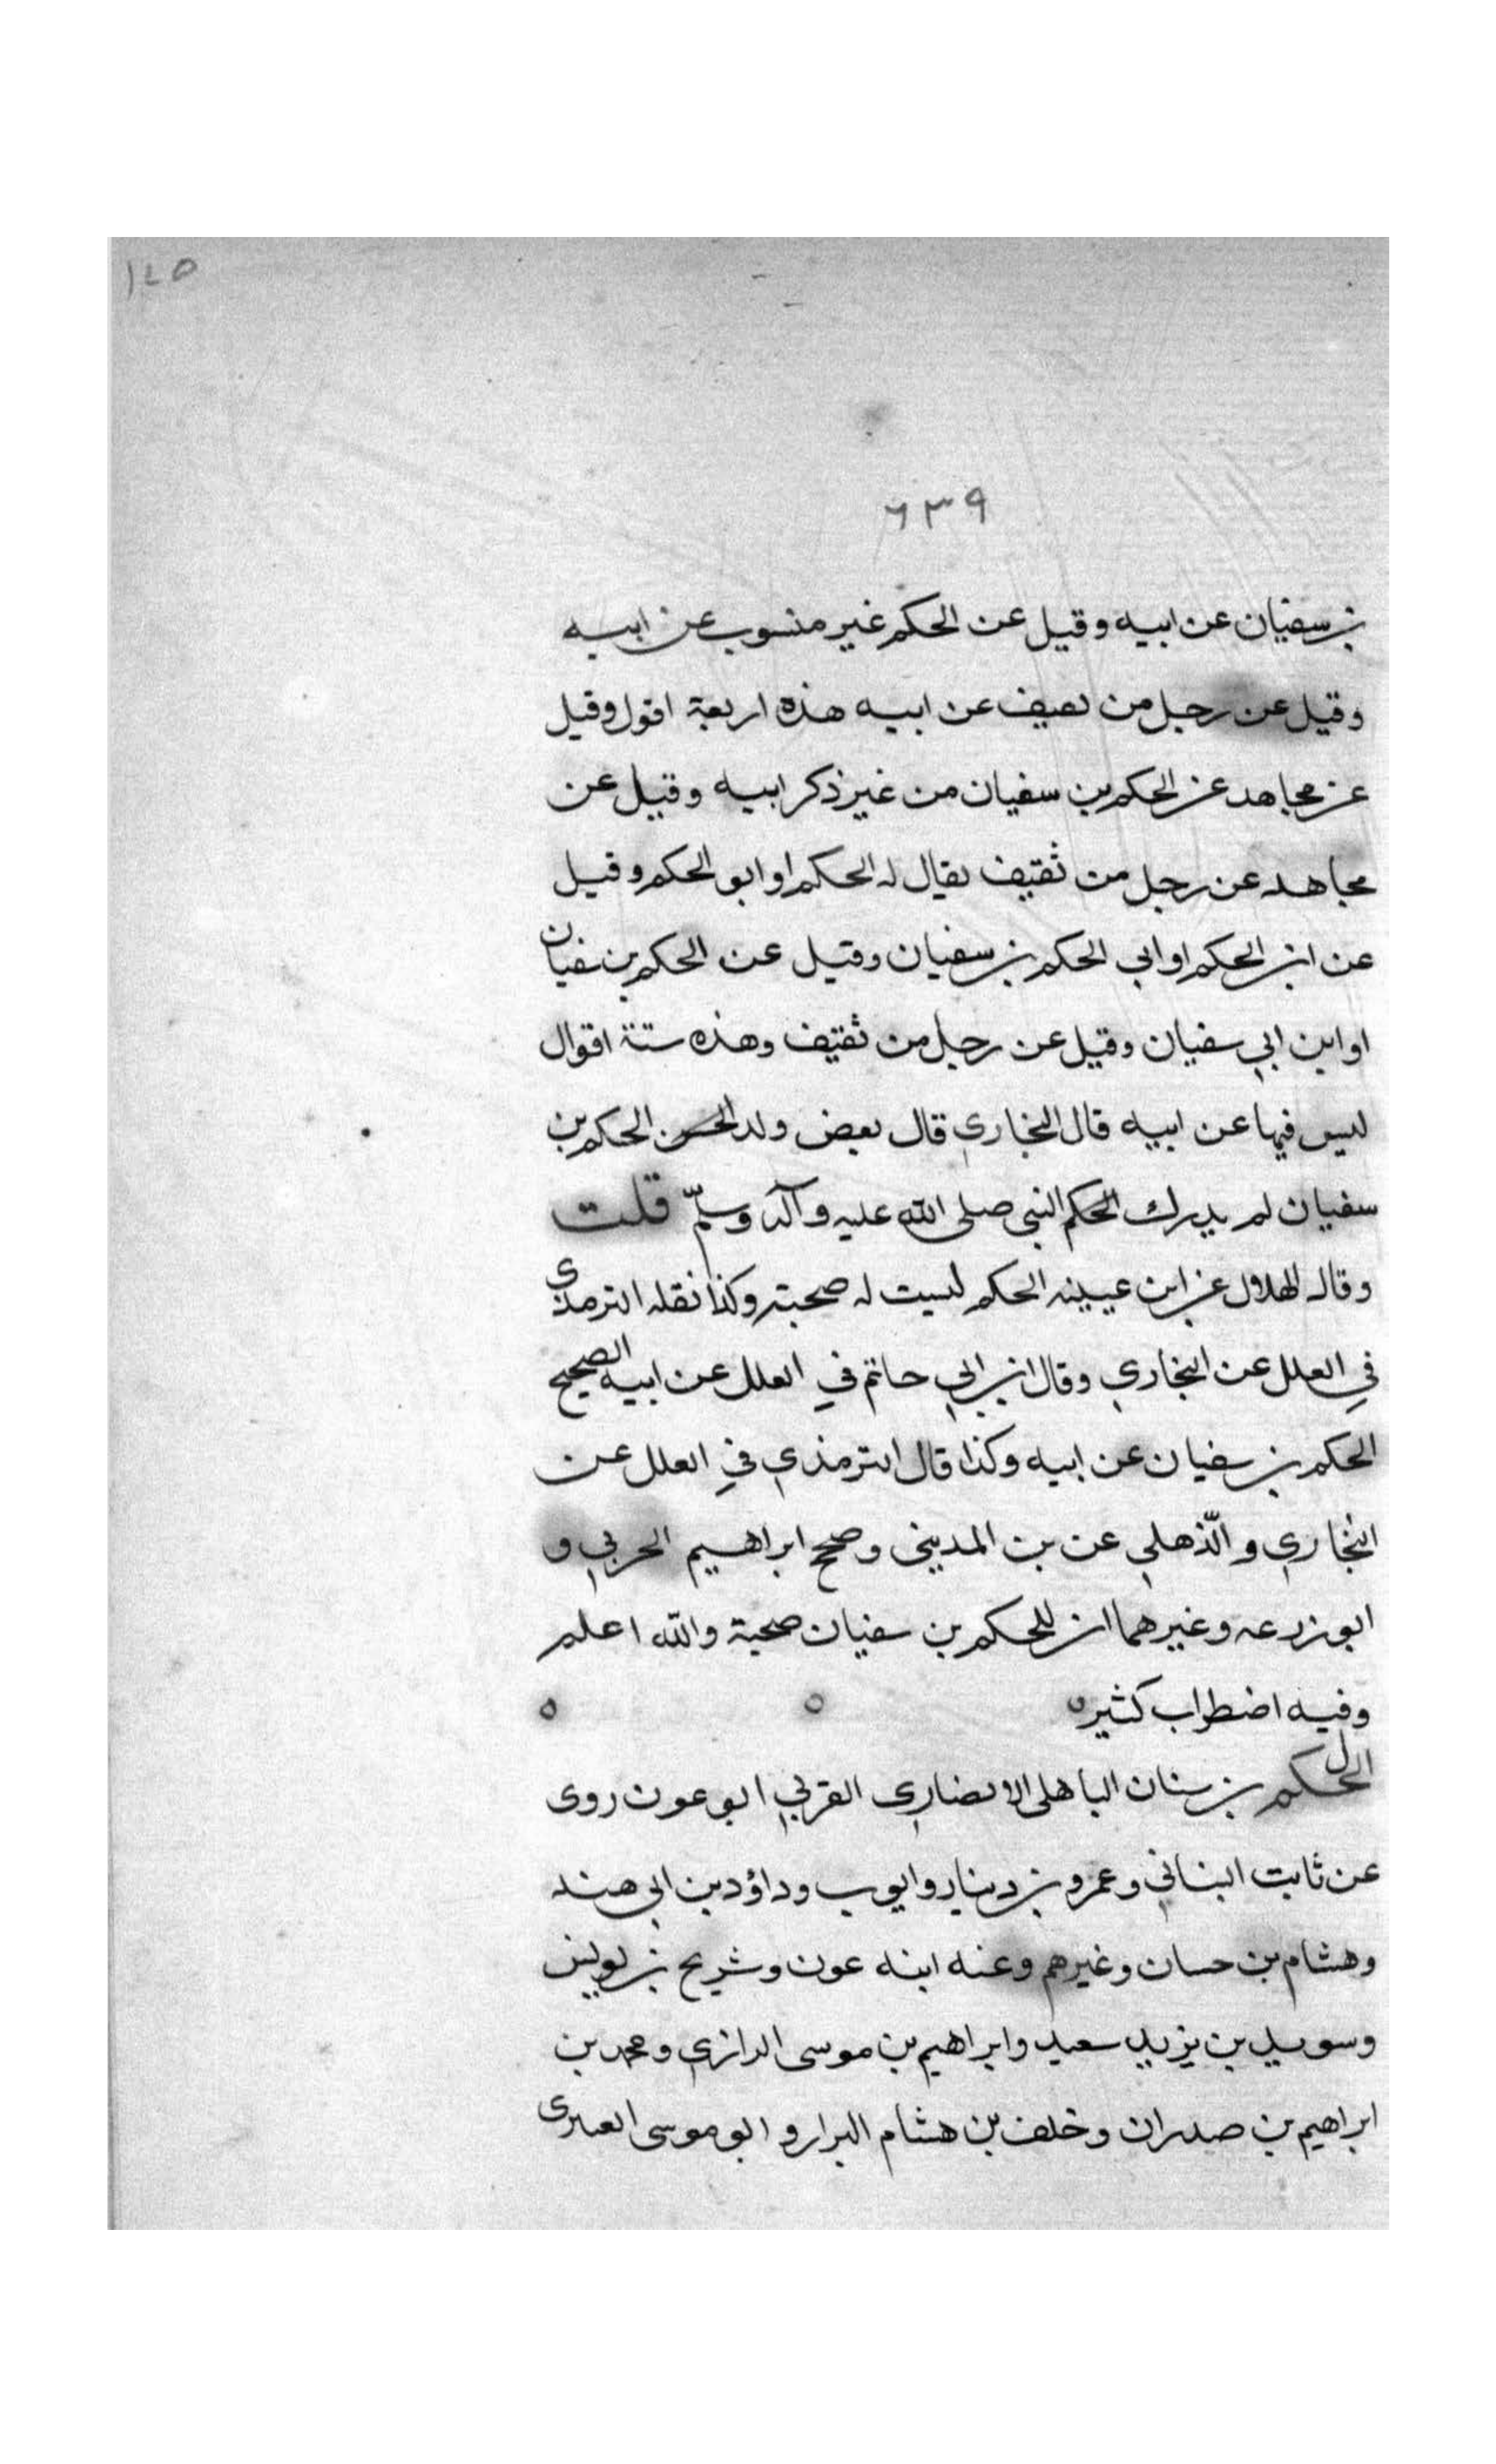 ١٢٥
٦٣٩
بن سفيان عن ابيه وقيل عن الحكم غير منسوب عن ابيه
وقيل عن رجل من ثقيف عن ابيه هذه اربعة اقول وقيل
عن مجاهد عن الحكم بن سفيان من غير ذكر ابيه وقيل عن
مجاهد عن رجل من ثقيف يقال له الحكم او ابو الحكم وقيل
عن ابن الحكم او ابي الحكم بن سفيان وقيل عن الحكم بن سفيان
او ابن ابي سفيان وقيل عن رجل من ثقيف وهذه ستة اقوال
ليس فيها عن ابيه قال البخاري قال بعض ولد الحكم بن
سفيان لم يدرك الحكم النبي صلى الله عليه وآله وسلّم قلت
وقال الهلال عن ابن عيينه الحكم ليست له صحبته وكذا نقله الترمذي
في العلل عن البخاري وقال ابن ابي حاتم في العلل عن ابيه الصحيح
الحكم بن سفيان عن ابيه وكذا قال الترمذي في العلل عن
البخاري والذّهلي عن بن المديني وصحح ابراهيم الحربي و
ابو زرعه وغيرهما ان للحكم بن سفيان صحبة والله اعلم
وفيه اضطراب كثير ه ه ه
الحكم بن سنان الباهلي الانصاري القربي ابو عون روى
عن ثابت البناني وعمرو بن دينار وايوب وداؤد بن ابي هند
وهشام بن حسان وغيرهم وعنه ابنه عون وشريح بن يونس
وسويد بن يزيد سعيد وابراهيم بن موسى الرازي ومحمد بن
ابراهيم بن صدران وخلف بن هشام البرار و ابو موسى العنزى